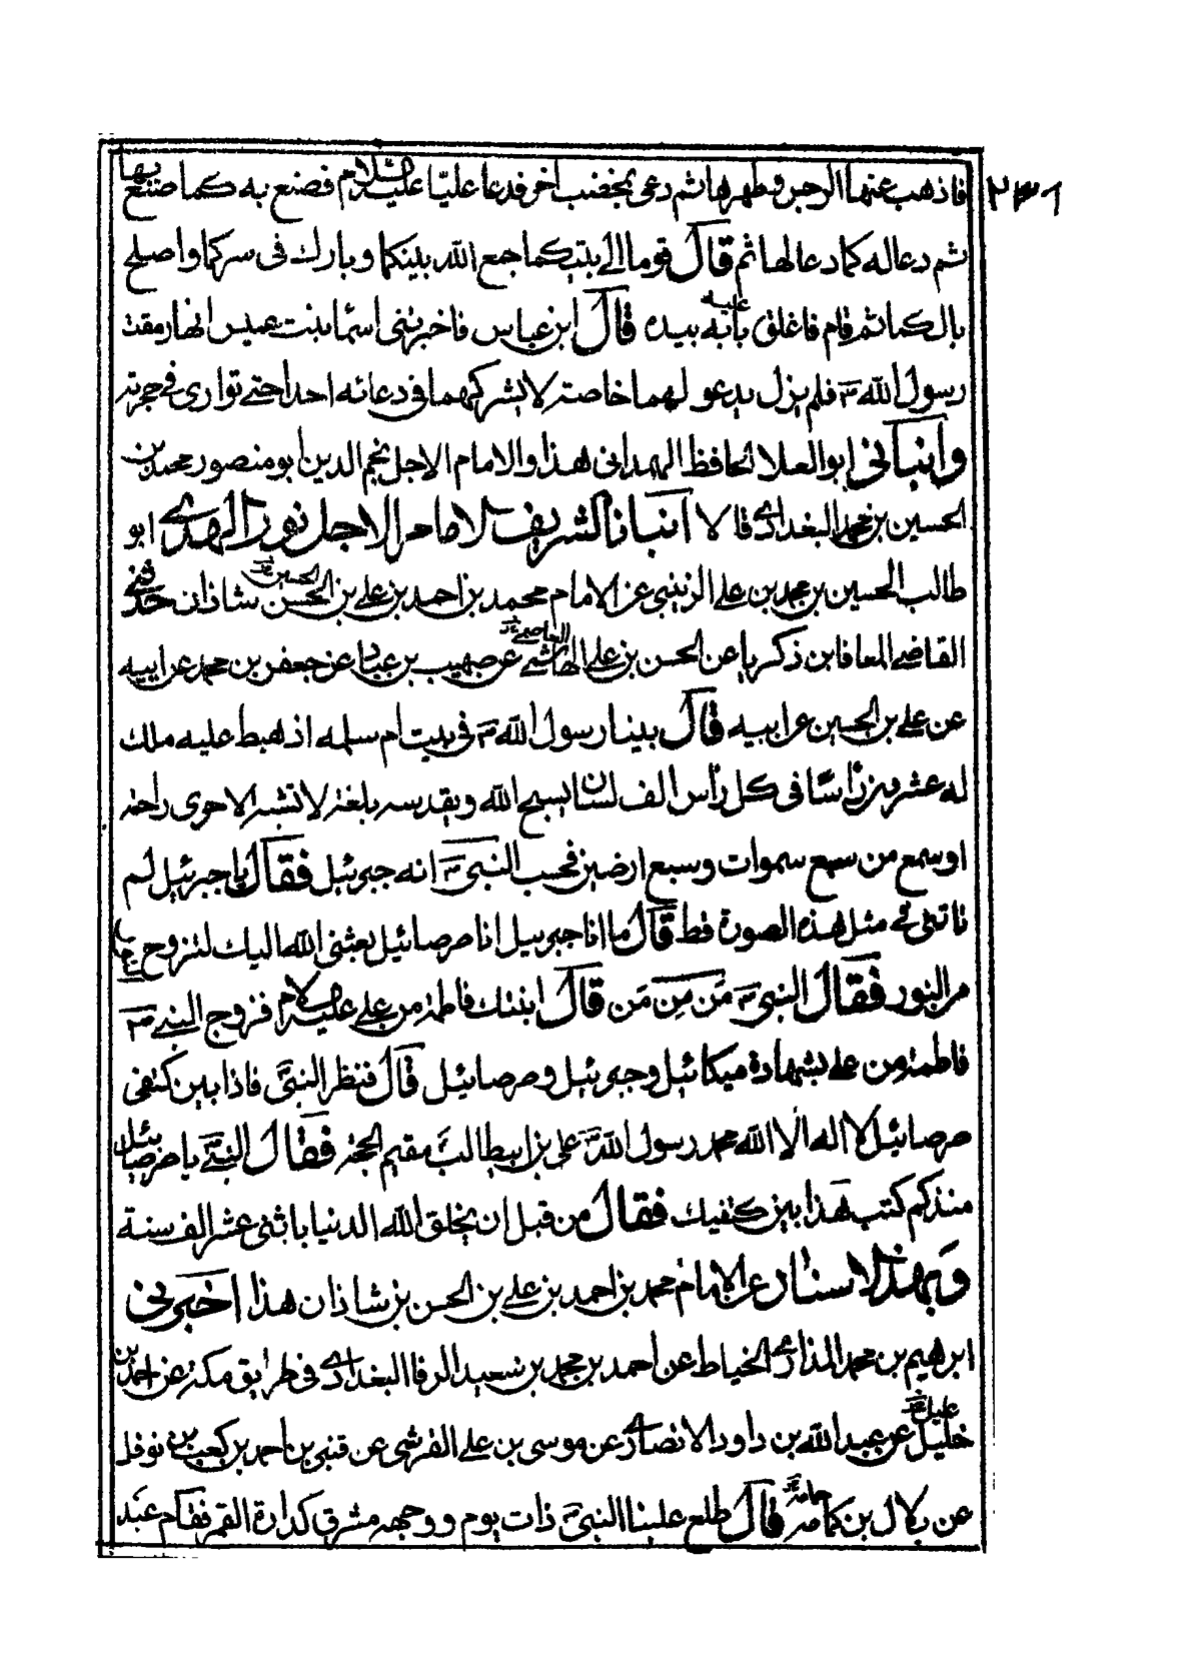 فاذهب عنها الرجس وطهرها ثم دعى بمخضب اخر فدعا عليّا عليه السلام فصنع به كما صنع بها
ثم دعا له كما دعا لها ثم قال قوما الى بيتكما جمع الله بينكما وبارك فى سركما واصلح
بالكما ثم قام فاغلق عليه بابه بيده قال ابن عباس فاخبرتنى اسما بنت عميس انها رمقت
رسول الله ص فلم يزل يدعو لهما خاصة لا يشركهما فى دعائه احدا حتى توارى فى حجرته
وانبانى ابو العلا الحافظ الهمدانى هذا والامام الاجل نجم الدين ابو منصور محمد بن
الحسين بن محمد البغدادى قالا انبانا الشريف الامام الاجل نور الهدى ابو
طالب الحسين بن محمد بن على الزينبى عن الامام محمد بن احمد بن على بن الحسن الحسين خ شاذان حدثنى
القاضى المعافا بن زكريا عن الحسن بن على الهاشمى العاصمى خ عن صهيب بن عباد عن جعفر بن محمد عن ابيه
عن على بن الحسين عن ابيه قال بينا رسول الله ص فى بيت ام سلمه اذ هبط عليه ملك
له عشرون رأسًا فى كل رأس الف لسان يسبح الله ويقدسه بلغة لا تشبه الاخرى راحته
اوسع من سبع سموات وسبع ارضين فحسب النبى ص انه جبرئيل فقال يا جبرئيل لم
تاتنى فى مثل هذه الصورة قط قال ما انا جبرييل انا صرصائيل بعثنى الله اليك لتزوج
من النور فقال النبى ص مَن مِن مَن قال ابنتك فاطمة من على عليه السلام فزوج النبى ص
فاطمة من على بشهادة ميكائيل وجبرئيل وصرصائيل قال فنظر النبى ص فاذا بين كتفى
صرصائيل لا اله الا الله محمد رسول الله ص على بن ابيطالب مقيم الحجة فقال النبى ص يا صرصيائيل
منذ كم كتب هذا بين كتفيك فقال من قبل ان يخلق الله الدنيا باثنى عشر الف سنة
وبهذا الاسناد عن الامام محمد بن احمد بن على بن الحسن بن شاذان هذا اخبرنى
ابرهيم بن محمد المذارى الخياط عن احمد بن محمد بن سعيد الرفا البغدادى فى طريق مكة عن احمد بن
خليل عليل خ عن عبد الله بن داود الانصارى عن موسى بن على القرشى عن قنبر بن احمد بن كعب بن نوفل
عن بلال بن كمامه حمامه خ قال طلع علينا النبى ص ذات يوم ووجهه مشرق كدارة القمر فقام عبد